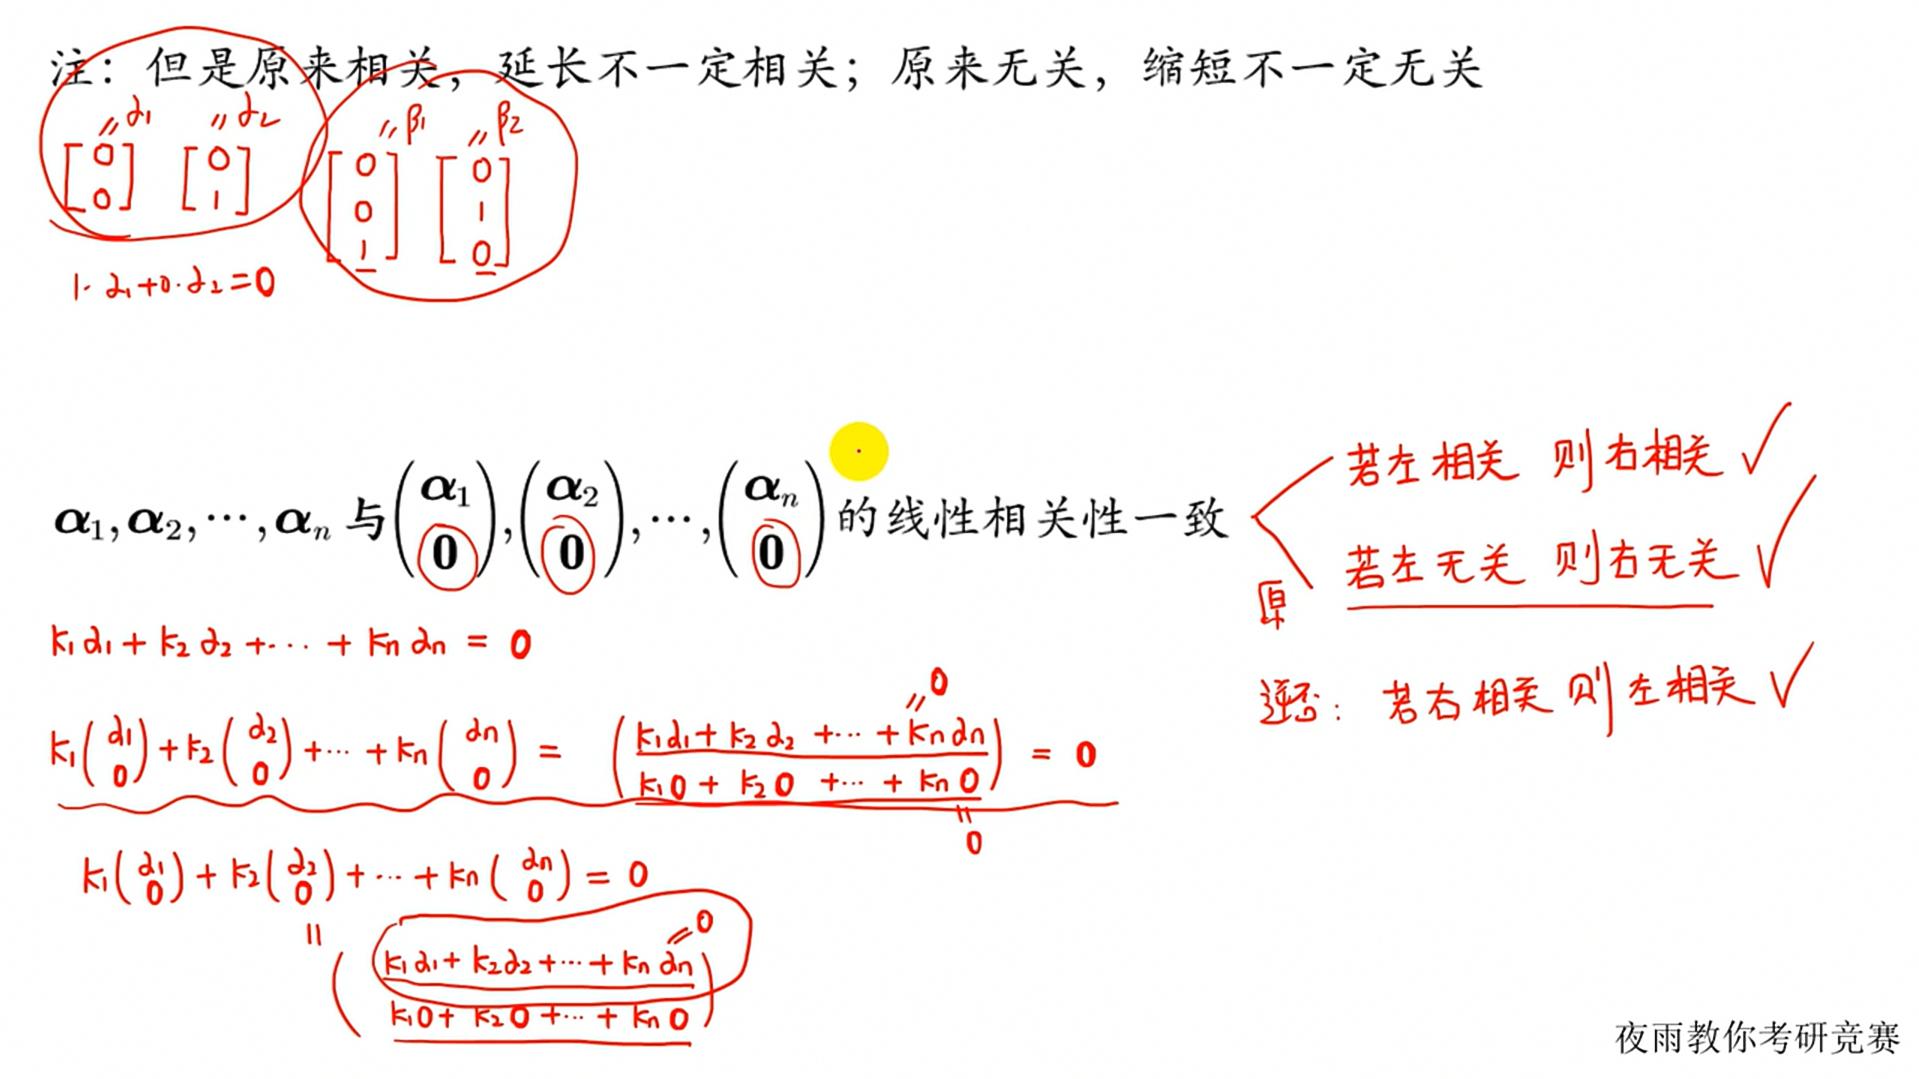 注：但是原来相关，延长不一定相关；原来无关，缩短不一定无关
α1 α2 β1 β2
[0 0] [0 1] [0 0 1] [0 1 0]
1·α1+0·α2=0
α1,α2,⋯,αn 与(α1 0),(α2 0),⋯,(αn 0)的线性相关性一致
若左相关 则右相关 ✓
原 若左无关 则右无关 ✓
逆否：若右相关 则左相关 ✓
k1α1+k2α2+⋯+knαn=0
k1(α1 0)+k2(α2 0)+⋯+kn(αn 0)=(k1α1+k2α2+⋯+knαn k10+k20+⋯+kn0)=0
=0
=0
k1(α1 0)+k2(α2 0)+⋯+kn(αn 0)=0
=
(k1α1+k2α2+⋯+knαn k10+k20+⋯+kn0)
=0
夜雨教你考研竞赛